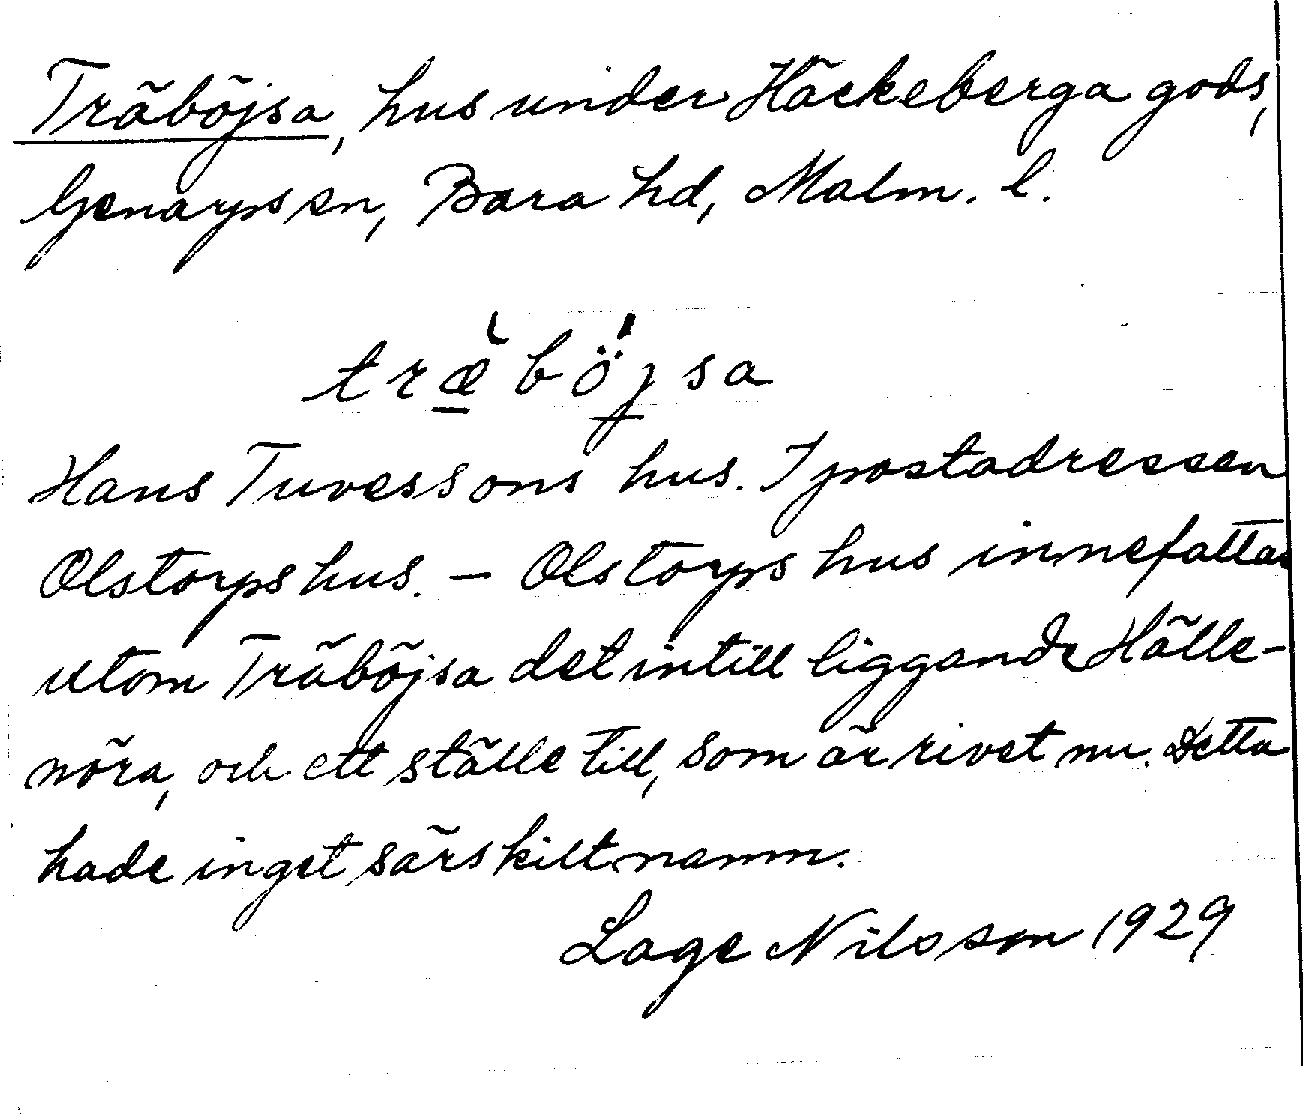 Träböjsa, hus under Häckeberga gods,
Genarps sn, Bara hd, Malm. l.
træ̀böjsa
Hans Tuvessons hus. I postadressen
Olstorpshus. – Olstorps hus innefattar
utom Träböjsa det intill liggande Hälle-
nöra, och ett ställe till, som är rivet nu. Detta
hade inget särskilt namn.
Lage Nilsson 1929